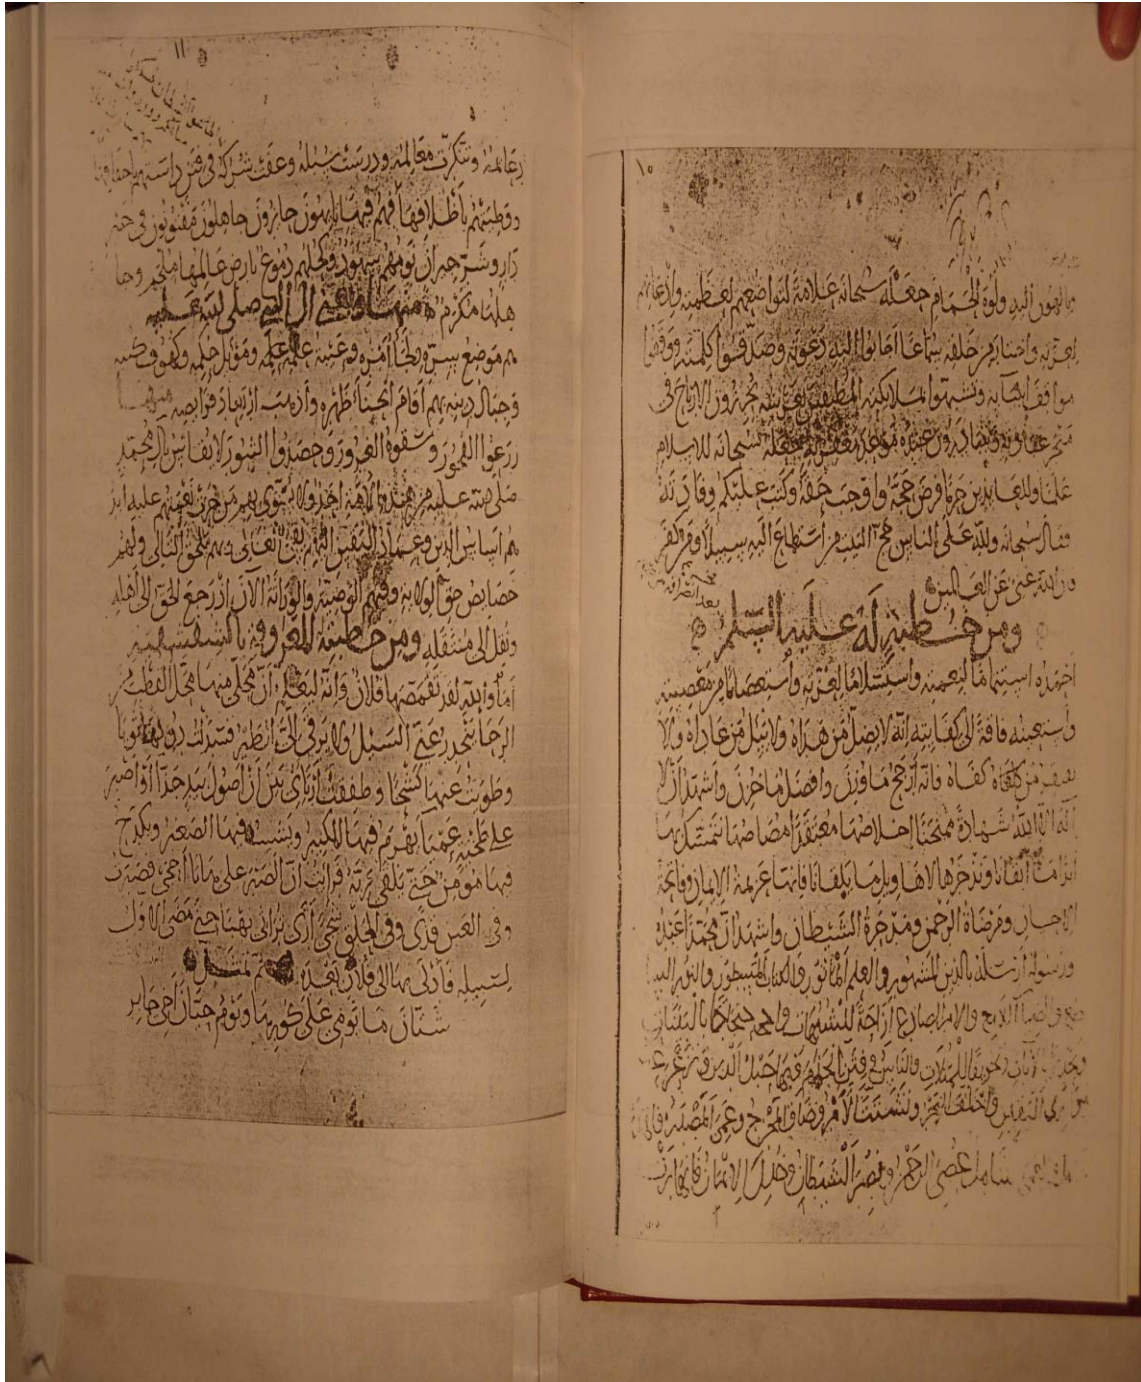 ١٠
يألهون اليه ولوه الحمام جعله سبحانه علامة لتواضعهم لعظمته واذعانهم
لعزته واختار من خلقه سماعا اجابوا اليه دعوته وصدقوا كلمته ووقفوا
مواقف انبيائه وتشبهوا بملائكته المطيفين بعرشه يحرزون الارباح في
متجر عبادته ويتبادرون عنده موعد مغفرته جعله سبحانه للاسلام
علما وللعائذين حرما فرض حجه واوجب حقه وكتب عليكم وفادته
فقال سبحانه ولله على الناس حج البيت من استطاع اليه سبيلا ومن كفر
فان الله غني عن العالمين
ومن خطبة له عليه السلم
بعد انصرافه من
احمده استتماما لنعمته واستسلاما لعزته واستعصاما من معصيته
واستعينه فاقة الى كفايته انه لا يضل من هداه ولا يئل من عاداه ولا
يفتقر من كفاه فانه ارجح ما وزن وافضل ما خزن واشهد ان لا
اله الا الله شهادة ممتحنا اخلاصها معتقدا مصاصها نتمسك بها
ابدا ما ابقانا وندخرها لاهاويل ما يلقانا فانها عزيمة الايمان وفاتحة
الاحسان ومرضاة الرحمن ومدحرة الشيطان واشهد ان محمدا عبده
ورسوله ارسله بالدين المشهور والعلم المأثور والكتاب المسطور والنور السا
طع والضياء اللامع والامر الصادع ازاحة للشبهات واحتجاجا بالبينات
وتحذيرا بالايات وتخويفا للمثلات والناس في فتن انجذم فيها حبل الدين وتزعزعت
سواري اليقين واختلف النجر وتشتت الامر وضاق المخرج وعمي المصدر فالهدى
خامل والعمى شامل عصي الرحمن ونصر الشيطان وخذل الايمان فانهارت
١١
دعائمه وتنكرت معالمه ودرست سبله وعفت شركه في فتن داستهم باخفافها
ووطئتهم باظلافها فهم فيها تايهون حايرون جاهلون مفتونون في خير
دار وشر جيران نومهم سهود وكحلهم دموع بارض عالمها ملجم وجا
هلها مكرم منها ويعني ال النبي صلى الله عليه
هم موضع سره ولجأ امره وعيبة علمه وموئل حكمه وكهوف كتبه
وجبال دينه بهم اقام انحناء ظهره واذهب ارتعاد فرايصه منها
زرعوا الفجور وسقوه الغرور وحصدوا الثبور لا يقاس بال محمد
صلى الله عليه من هذه الامة احد ولا يسوى بهم من جرت نعمتهم عليه ابدا
هم اساس الدين وعماد اليقين اليهم يفئ الغالي وبهم يلحق التالي ولهم
خصايص حق الولاية وفيهم الوصية والوراثة الان اذ رجع الحق الى اهله
ونقل الى منتقله ومن خطبته المعروفة بالشقشقية
اما والله لقد تقمصها فلان وانه ليعلم ان محلي منها محل القطب من
الرحا ينحدر عني السيل ولا يرقى الي الطير فسدلت دونها ثوبا
وطويت عنها كشحا وطفقت ارتاي بين ان اصول بيد جذاء او اصبر
على طخية عمياء يهرم فيها الكبير ويشيب فيها الصغير ويكدح
فيها مؤمن حتى يلقى ربه فرايت ان الصبر على هاتا احجى فصبرت
وفي العين قذى وفي الحلق شجى ارى تراثي نهبا حتى مضى الاول
لسبيله فادلى بها الى فلان بعده ثم تمثل
شتان ما يومي على كورها ويوم حيان اخي جابر